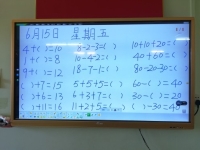 6月15日 星期五
4+( )=10 8-2-3=( ) 10+10+20=( )
( )+( )=8 10-4-2=( ) 40+60=( )
9+( )=12 18-7-1=( ) 80-20-30=( )
( )+7=15 5+5+5=( ) 60-( )=40
( )+6=13 6+3+7=( ) 30-( )=20
( )+11=16 11+2+5=( ) ( )-30=45